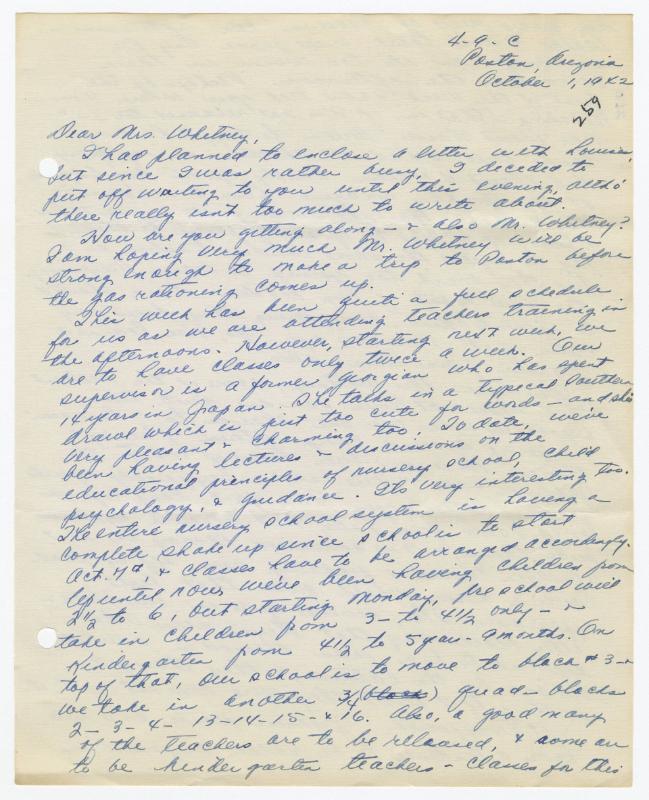 4-9-C
Poston, Arizona
October 1, 1942
259
Dear Mrs. Whitney,
I had planned to enclose a letter with Louise,
but since I was rather busy, I decided to
put off writing to you until this evening, altho'
there really isn't too much to write about.
How are you getting along - & also Mr. Whitney?
I am hoping very much Mr. Whitney will be
strong enough to make a trip to Poston before
the gas rationing comes up.
This week has been quite a full schedule
for us as we are attending teachers training in
the afternoons. However, starting next week, we
are to have classes only twice a week. Our
supervisor is a former Georgian who has spent
14 years in Japan. She talks in a typical Southern
drawl which is just too cute for words - and she's
very pleasant & charming too. To date, we've
been having lectures & discussions on the
educational principles of nursery school, child
psychology, & guidance. Its very interesting too.
The entire nursery school system is having a
complete shake up since school is to start
Oct. 7th, & classes have to be arranged accordingly.
Up until now we've been having children from
2 1/2 to 6, but starting Monday, pre school will
take in children from 3- to 4 1/2 only - &
Kindergarten from 4 1/2 to 5 year - 9 months. On
top of that, our school is to move to block #3 - &
we take in another 3/4 (block) quad - blocks
2- 3- 4- 13-14-15- & 16. Also, a good many
of the teachers are to be released, & some are
to be kindergarten teachers - classes for this